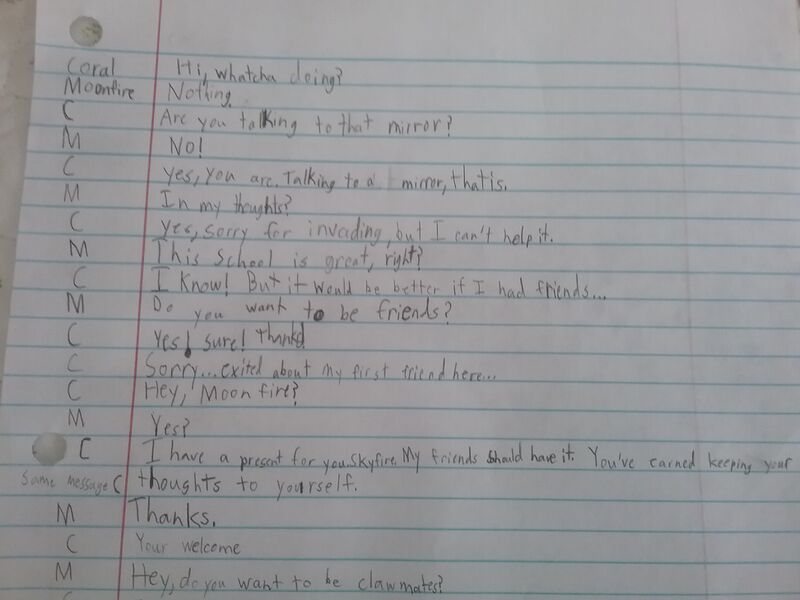 Coral Hi, whatcha doing?
Moonfire Nothing
C Are you talking to that mirror?
M No!
C yes, you are. Talking to a mirror, that is.
M In my thoughts?
C yes, sorry for invading, but I can't help it.
M This School is great, right?
C I Know! But it would be better if I had friends...
M Do you want to be friends?
C Yes! sure! Thanks!
C Sorry... exited about my first friend here...
C Hey, Moonfire?
M Yes?
C I have a present for you. Skyfire. My friends should have it. You've earned keeping your
Same message C thoughts to yourself.
M Thanks.
C Your welcome
M Hey, do you want to be clawmates?
C